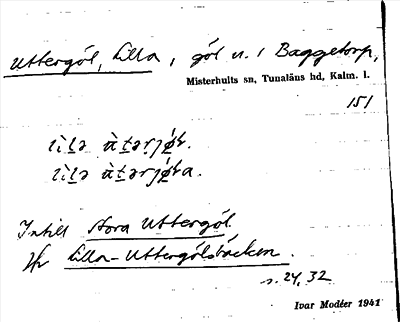 Uttergöl, Lilla, göl n. i Baggetorp,
Misterhults sn, Tunaläns hd, Kalm. l.
151
Intill Stora Uttergöl.
Lilla-Uttergölsbäcken.
s. 24, 32
Ivar Modéer 1941